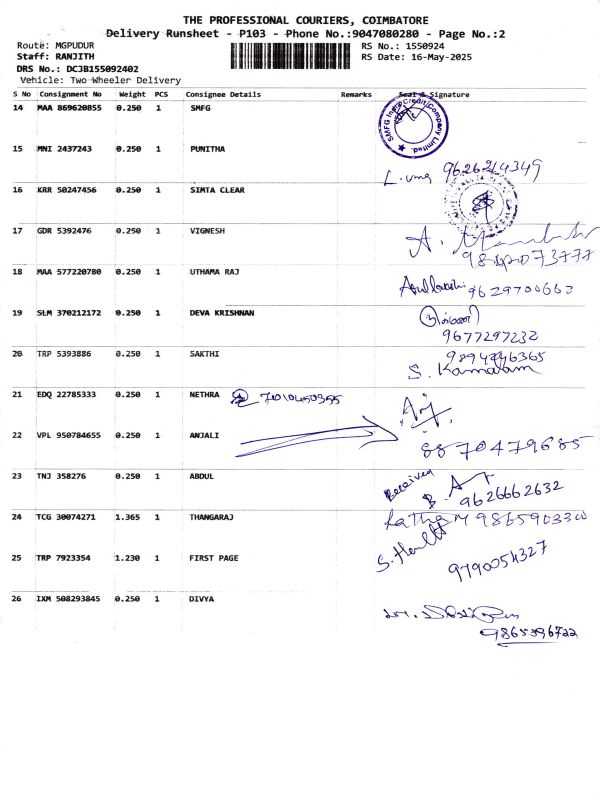 THE PROFESSIONAL COURIERS, COIMBATORE
Delivery Runsheet - P103 - Phone No.:9047080280 - Page No.:2
Route: MGPUDUR RS No.: 1550924
Staff: RANJITH RS Date: 16-May-2025
DRS No.: DCJB155092402
Vehicle: Two Wheeler Delivery
S No Consignment No Weight PCS Consignee Details Remarks Seal & Signature
14 MAA 869620855 0.250 1 SMFG
SMFG India Credit Company Limited.
15 MNI 2437243 0.250 1 PUNITHA
L. uma 9626214349
16 KRR 50247456 0.250 1 SIMTA CLEAR
17 GDR 5392476 0.250 1 VIGNESH
A.
18 MAA 577220780 0.250 1 UTHAMA RAJ
9629700662
19 SLM 370212172 0.250 1 DEVA KRISHNAN
9677297232
20 TRP 5393886 0.250 1 SAKTHI
S. Kamalam
21 EDQ 22785333 0.250 1 NETHRA
22 VPL 950784655 0.250 1 ANJALI
8870479685
23 TNJ 358276 0.250 1 ABDUL
Received
9626662632
24 TCG 30074271 1.365 1 THANGARAJ
9865903300
25 TRP 7923354 1.230 1 FIRST PAGE
9790054327
26 IXM 508293845 0.250 1 DIVYA
9865396722